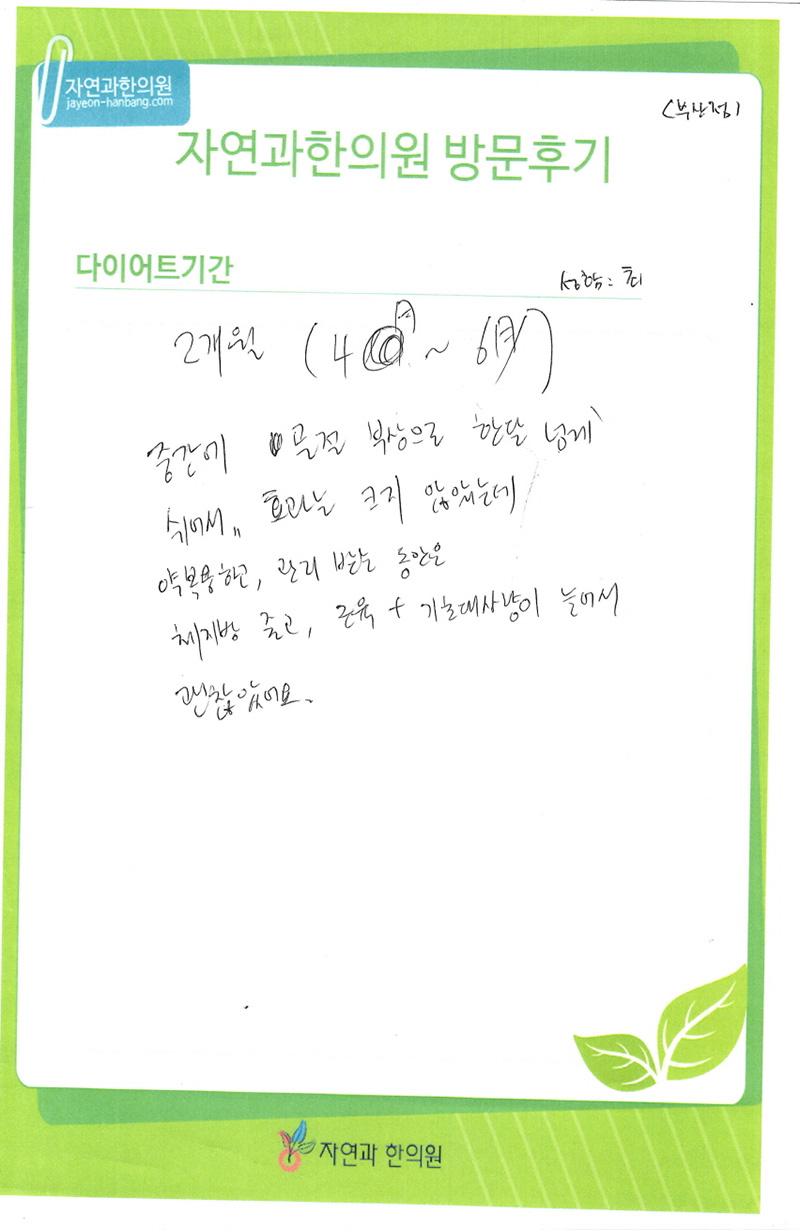 자연과한의원
jayeon-hanbang.com
(부산점)
자연과한의원 방문후기
다이어트기간
성함: 최
2개월 (4월 ~ 6月)
중간에 골절 부상으로 한달 넘게
쉬어서,, 효과는 크지 않았는데
약복용하고, 관리 받는 동안은
체지방 줄고, 근육 + 기초대사량이 늘어서
괜찮았어요.
자연과 한의원